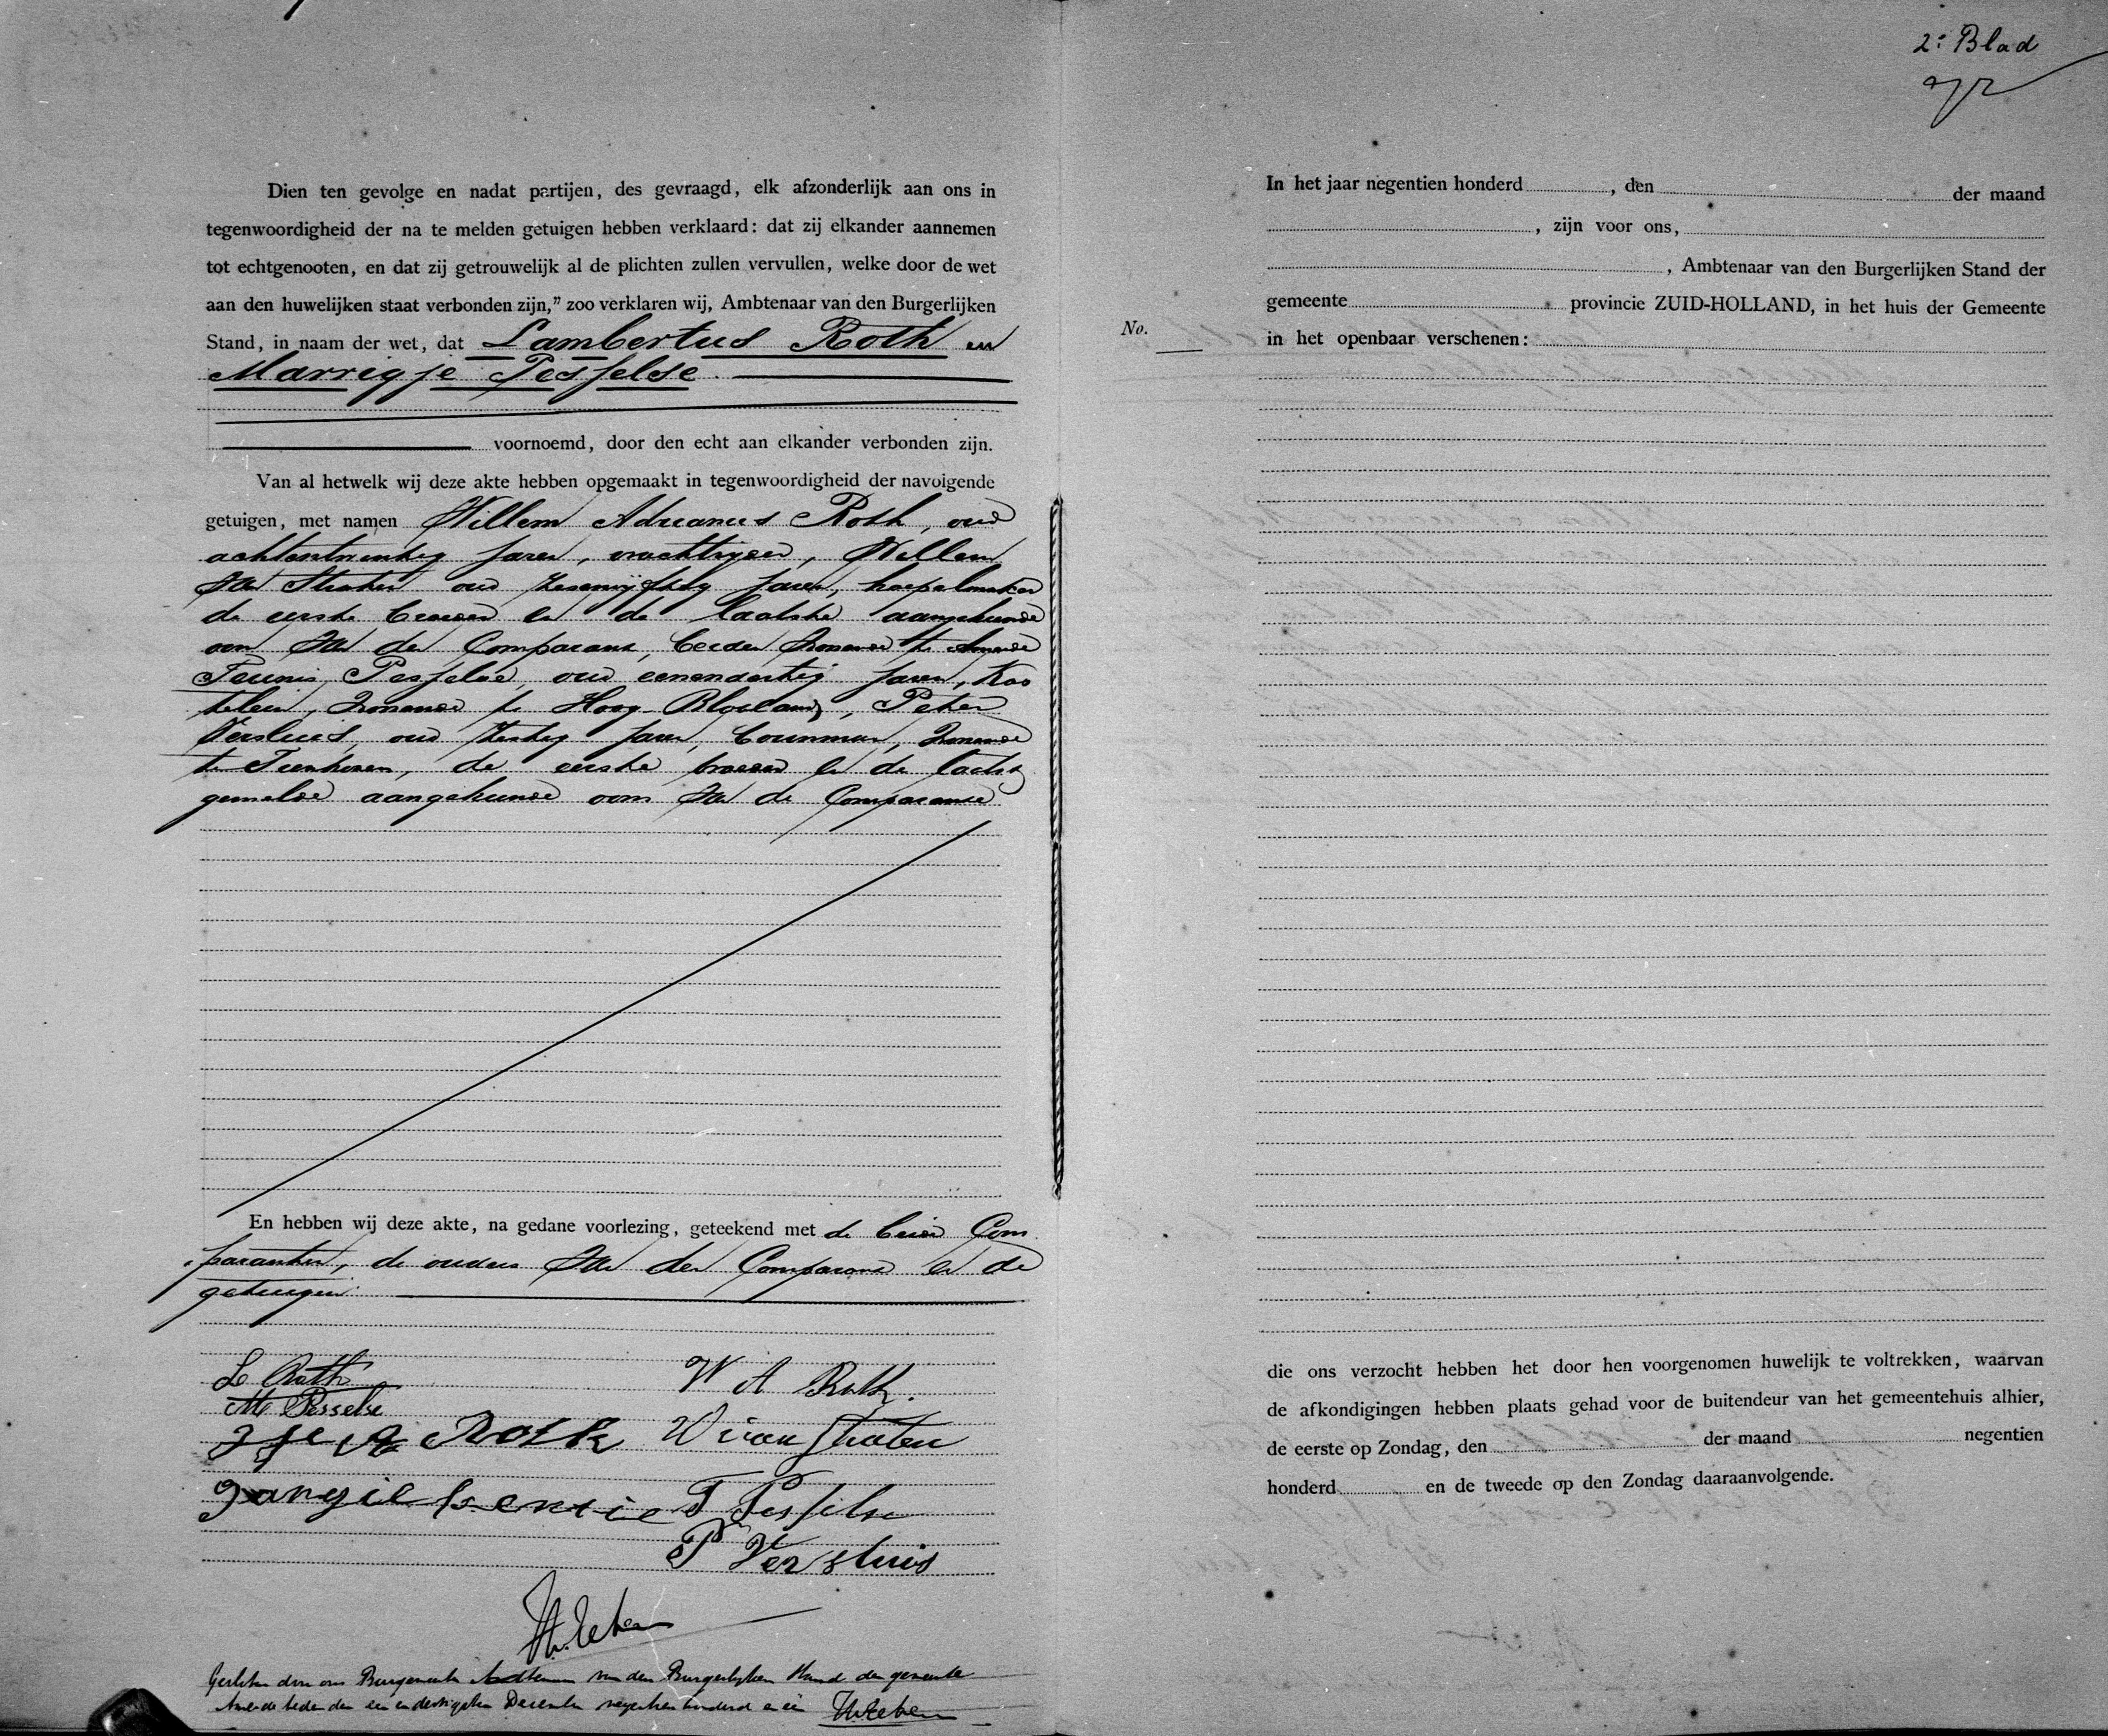 Dien ten gevolge en nadat partijen, des gevraagd, elk afzonderlijk aan ons in
tegenwoordigheid der na te melden getuigen hebben verklaard: dat zij elkander aannemen
tot echtgenooten, en dat zij getrouwelijk al de plichten zullen vervullen, welke door de wet
aan den huwelijken staat verbonden zijn,” zoo verklaren wij, Ambtenaar van den Burgerlijken
Stand, in naam der wet, dat Lambertus Roth en
Marrigje Pesselse.
voornoemd, door den echt aan elkander verbonden zijn.
Van al hetwelk wij deze akte hebben opgemaakt in tegenwoordigheid der navolgende
getuigen, met namen Willem Adrianus Roth, oud
achtentwintig jaren, vrachtrijder, Willem
van Straten oud zesenvijftig jaren, hoepelmaker
de eerste broeder en de laatste aangehuwde
oom van den Comparant, beiden wonende te Ameide
Teunis Pesselse, oud eenendertig jaren, Kas
telein, wonende te Hoog-Blokland, Pieter
Versluis, oud zestig jaren, bouwman, wonende
te Tienhoven, de eerste broeder en de laatst
gemelde aangehuwde oom van de Comparante
En hebben wij deze akte, na gedane voorlezing, geteekend met de beide Com
paranten, de ouders van den Comparant en de
getuigen.
L Roth
M Pesselse
W A Roth.
Roth
W van Straten
T Pesselse
P Versluis
Gesloten door ons Burgemeester Ambtenaar van den Burgerlijken Stand der gemeente
Ameide heden den een en dertigsten December negentien honderd en een
2e Blad
In het jaar negentien honderd , den der maand
, zijn voor ons,
, Ambtenaar van den Burgerlijken Stand der
gemeente provincie ZUID-HOLLAND, in het huis der Gemeente
No.
in het openbaar verschenen:
die ons verzocht hebben het door hen voorgenomen huwelijk te voltrekken, waarvan
de afkondigingen hebben plaats gehad voor de buitendeur van het gemeentehuis alhier,
de eerste op Zondag, den der maand negentien
honderd en de tweede op den Zondag daaraanvolgende.